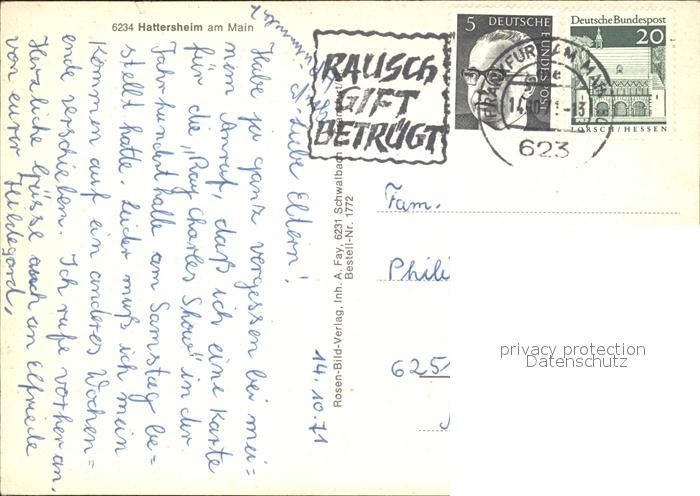 6234 Hattersheim am Main
Liebe Eltern!
Habe ja ganz vergessen bei mei=
nem Anruf, daß ich eine Karte
für die „Ray Charles Show" in der
Jahrhunderthalle am Samstag be=
stellt hatte. Leider muß ich mein
Kommen auf ein anderes Wochen=
ende verschieben. Ich rufe vorher an.
Herzliche Grüsse auch an Elfriede
von eurer Hildegard,
14.10.71
Rosen-Bild-Verlag, Inh. A. Fay, 6231 Schwalbach
Bestell-Nr. 1772
RAUSCH
GIFT
BETRÜGT
5 DEUTSCHE
BUNDESPOST
Deutsche Bundespost
20
LORSCH/HESSEN
FRANKFURT AM MAIN
623
Fam.
Phili
6251
privacy protection
Datenschutz